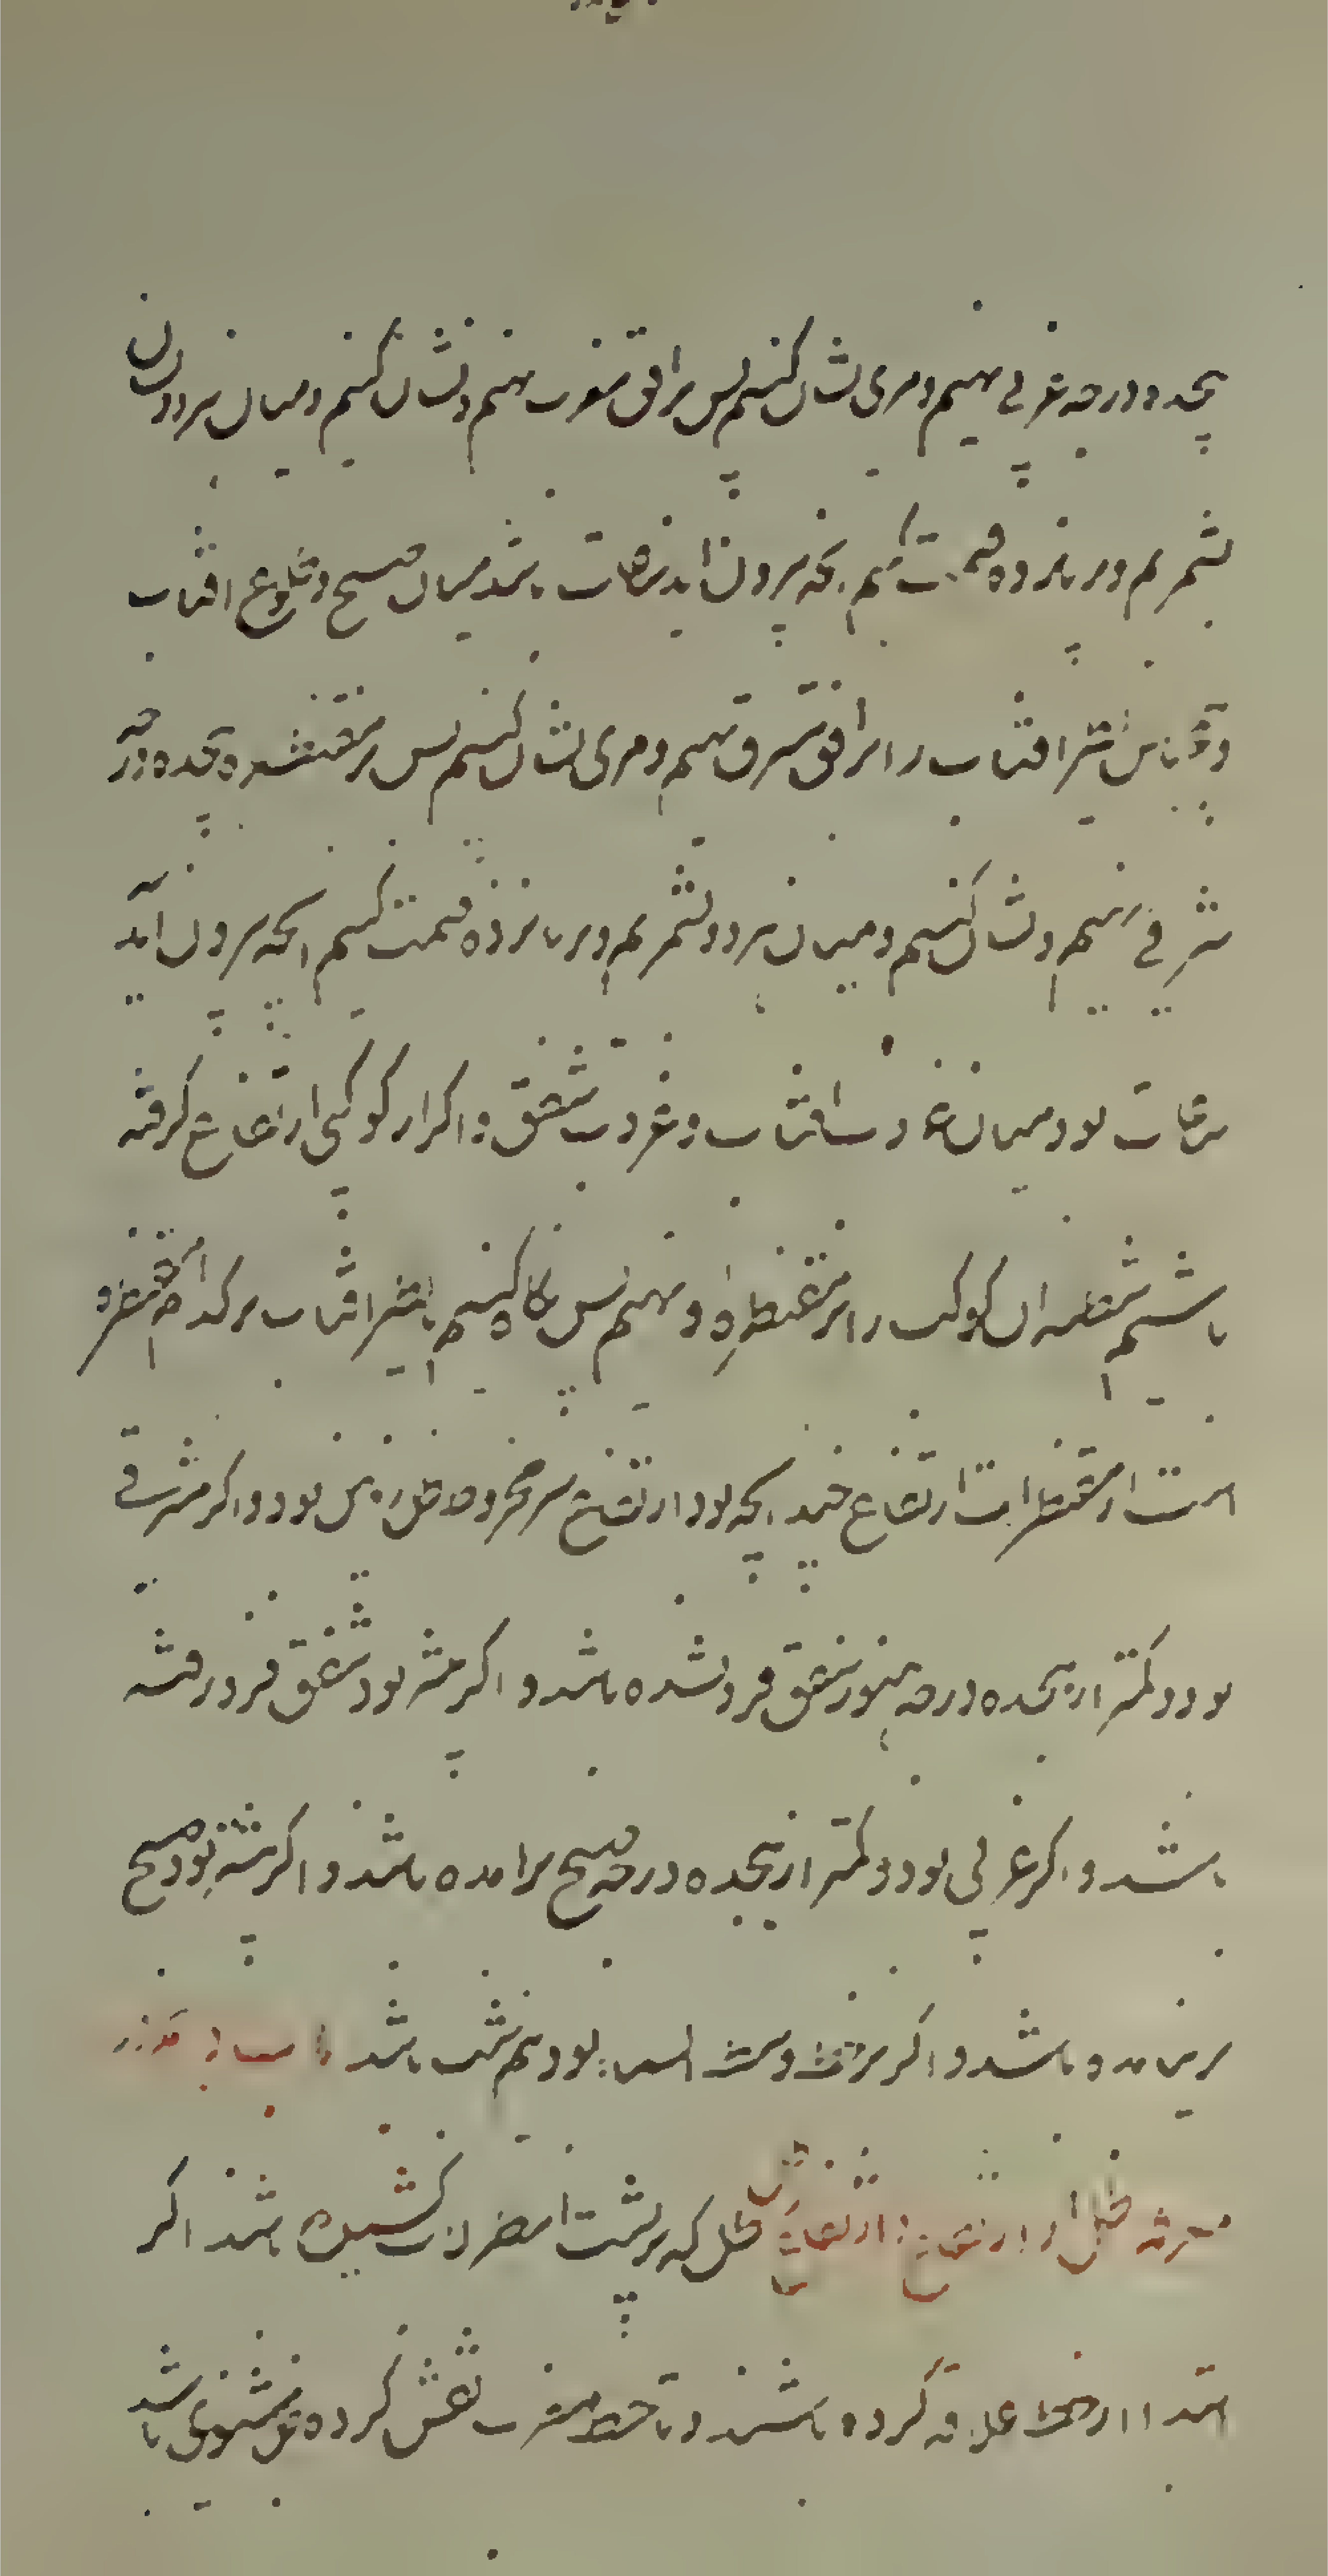 هجده درجه غربی نهیم و مری نشان کنیم پس بر افق مغرب نهیم و نشان کنیم و میان هر دو نشان
بشمریم و بر پانزده قسمت کنیم آنچه بیرون اید ساعات باشد میان صبح و طلوع افتاب
نظیر افتاب را بر افق مشرق نهیم و مری نشان کنیم پس بر مقنطره هجده درجه
شرقی نهیم و نشان کنیم و میان هر دو بشمریم و بر پانزده قسمت کنیم آنچه بیرون آید
ساعات بود میان غروب افتاب و غروب شفق و اگر از کوکبی ارتفاع گرفته
باشیم شظیه ان کوکب را بر مقنطره او نهیم پس نگاه کنیم تا نظیر افتاب بر کدام مقنطره
است از مقنطرات ارتفاع چند آنچه بود ارتفاع سر مخروط ظل زمین بود و اگر شرقی
بود و کمتر از هجده درجه هنوز شفق فرو نشده باشد و اگر بیشتر بود شفق فرو رفته
باشد و اگر غربی بود و کمتر از هجده درجه صبح برامده باشد و اگر بیشتر بود صبح
برنیامده باشد و اگر بر خط وسط السما بود نیم شب باشد باب
معرفة ظل از ارتفاع و ارتفاع از ظل ظل که بر پشت اصطرلاب کشیده باشند اگر
ابتدا از خط علاقه کرده باشند و تا خط مغرب نقش کرده ظل مستوی باشد